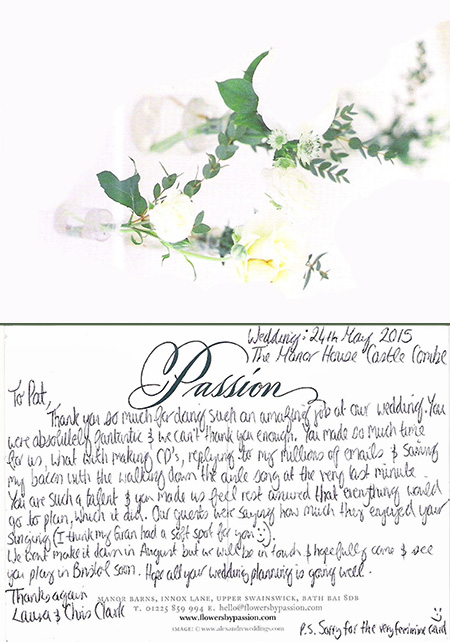 Wedding: 24th May 2015
The Manor House Castle Combe
Passion
To Pat,
Thank you so much for doing such an amazing job at our wedding. You
were absolutely fantastic & we can't thank you enough. You made so much time
for us, what with making CD's, replying to my millions of emails & saving
my bacon with the walking down the aisle song at the very last minute.
You are such a talent & you made us feel rest assured that everything would
go to plan, which it did. Our guests were saying how much they enjoyed your
singing (I think my Gran had a soft spot for you :)).
We can't make it down in August but we will be in touch & hopefully come & see
you play in Bristol soon. Hope all your wedding planning is going well.
Thanks again
Laura & Chris Clark
MANOR BARNS, INNOX LANE, UPPER SWAINSWICK, BATH BA1 8DB
T. 01225 859 994 E. hello@flowersbypassion.com
www.flowersbypassion.com
IMAGE: © www.alexanderweddings.com
P.S. Sorry for the very feminine card :)